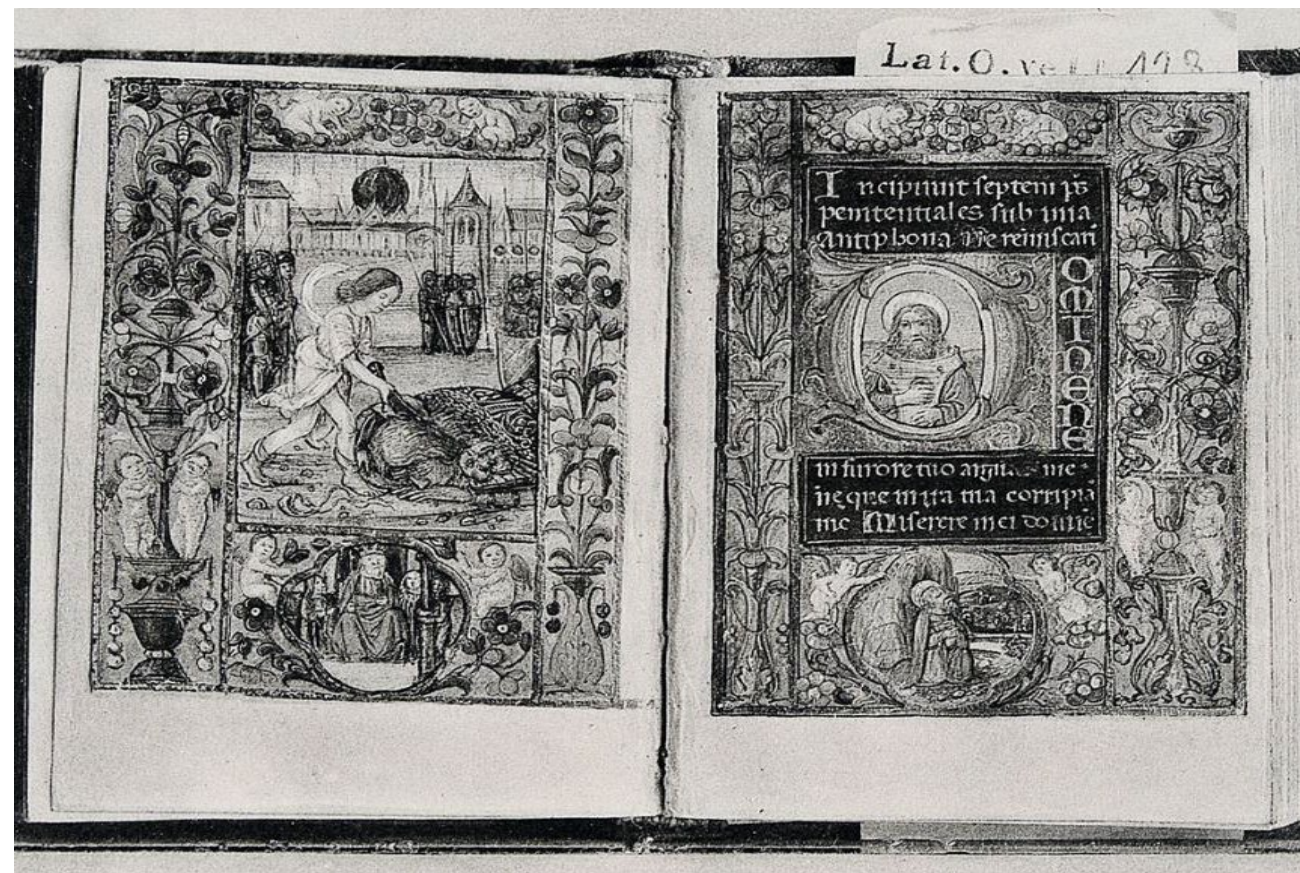 Lat. O. vel. I 128
Incipiunt septem ps
penitentiales sub una
Antiphona Ne reminiscari
OMINENENE
in furore tuo arguas me
neque in ira tua corripias
me Miserere mei domine